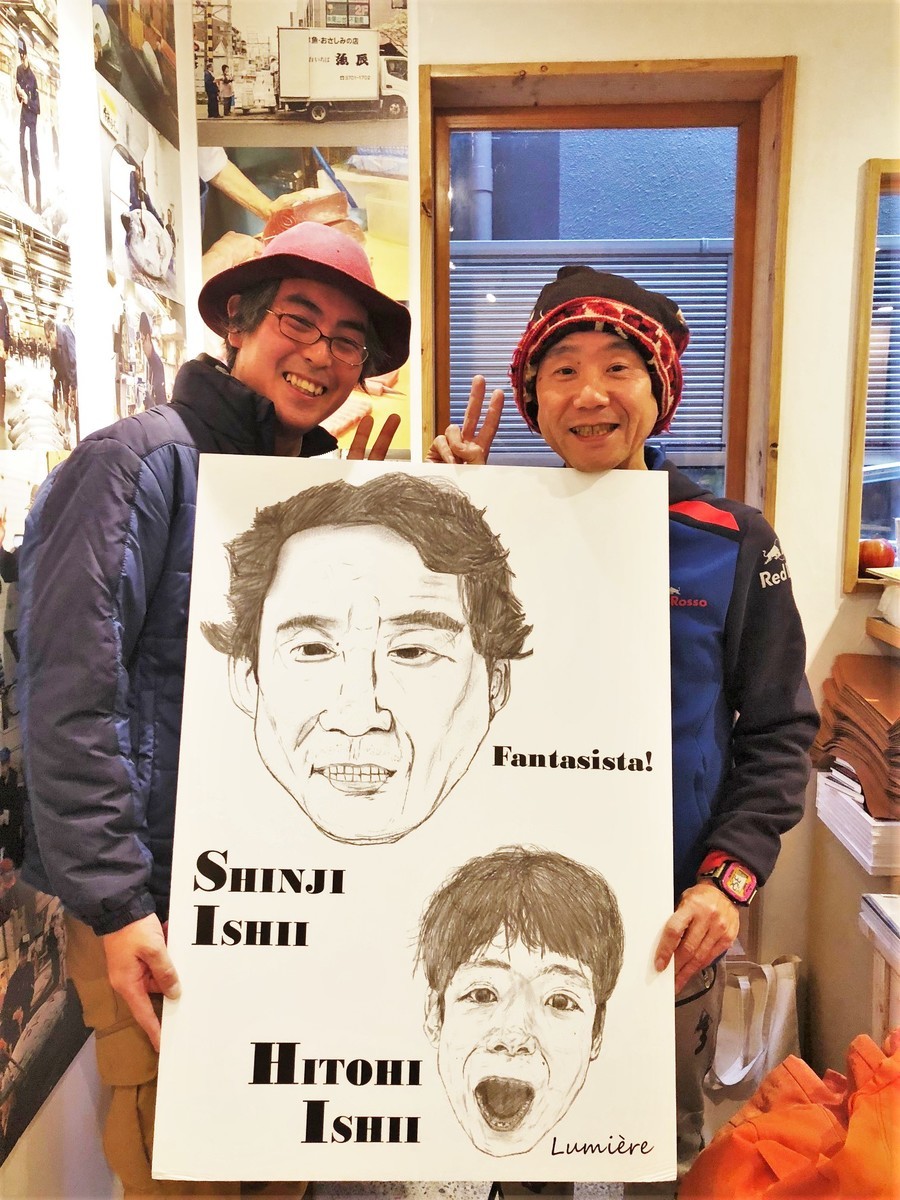 魚・おさしみの店
魚辰
Red
Rosso
Fantasista!
SHINJI
ISHII
HITOHI
ISHII
Lumière